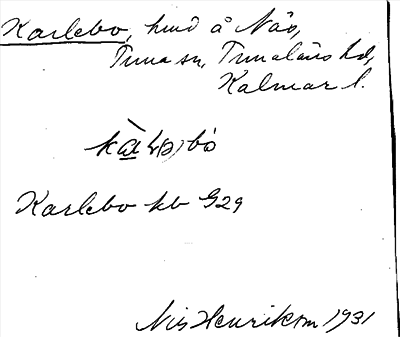 Karlebo, hmd å Näs,
Tuna sn, Tunaläns hd,
Kalmar l.
Karlebo kb G29
Nis Henrikson 1931